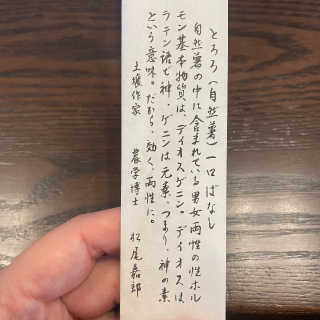 とろろ(自然薯)一口ばなし
自然薯の中に含まれている男女両性の性ホル
モン基本物質は、ディオスゲニン。ディオスは、
ラテン語で神、ゲニンは元素、つまり、神の素
という意味。だから、効く、両性に。
土壌作家 農学博士 松尾嘉郎